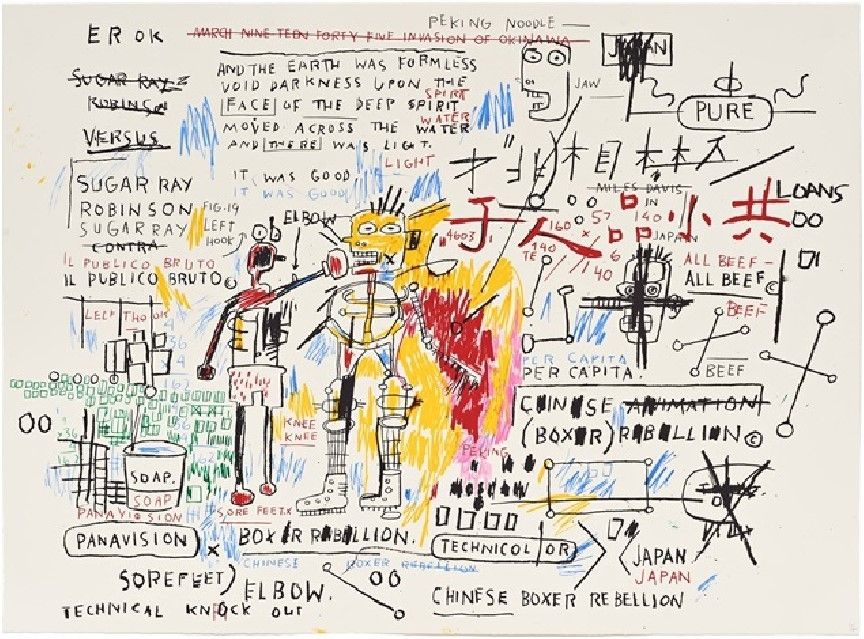 PEKING NOODLE
EROK
MARCH NINE TEEN FORTY FIVE INVASION OF OKINAWA
JAPAN
SUGAR RAY
ROBINSON
VERSUS
AND THE EARTH WAS FORMLESS
VOID DARKNESS UPON THE
SPIRIT
[FACE] OF THE DEEP SPIRIT
WATER
MOVED ACROSS THE WATER
AND [THERE] WAS LIGHT.
LIGHT
JAW
PURE
IT WAS GOOD
IT WAS GOOD
SUGAR RAY
ROBINSON
SUGAR RAY
CONTRA
IL PUBLICO BRUTO
IL PUBLICO BRUTO
FIG.19
LEFT
HOOK
ELBOW
MILES DAVIS
IN
JAPAN
LOANS
00
小 共
4603
160 × 57
140
40
ALL BEEF –
ALL BEEF ©
BEEF
BEEF
PER CAPITA
PER CAPITA.
CHINESE ANIMATION
(BOXER) REBELLION ©
KNEE
KNEE
PEKING
MOSCOW
00
SOAP.
SOAP
PANAVISION
SORE FEET.X
PANAVISION
X
BOXER REBELLION.
TECHNICOLOR
CHINESE BOXER REBELLION
JAPAN
JAPAN
SOREFEET) ELBOW.
00
CHINESE BOXER REBELLION
TECHNICAL KNOCK OUT